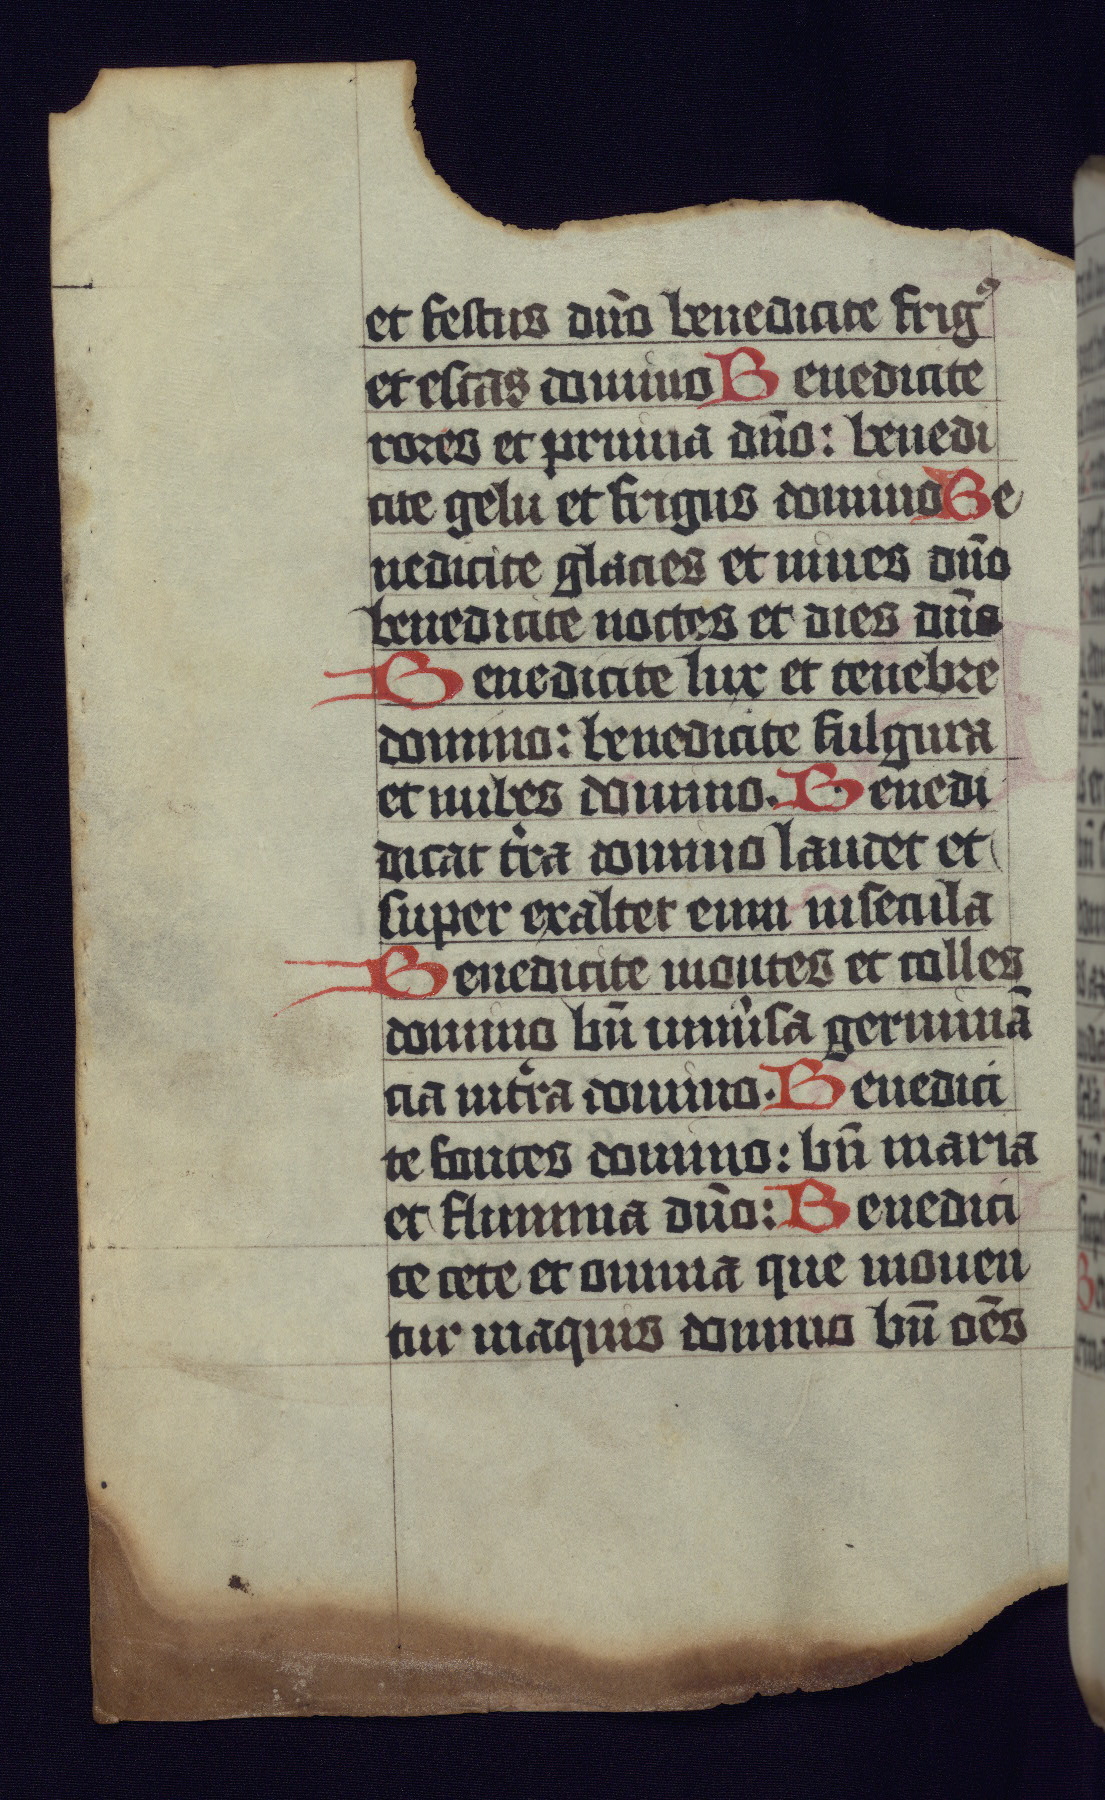 et festus dn̄o benedicite frigꝰ
et estas domino Benedicite
rores et pruina dn̄o: benedi
cite gelu et frigus domino Be
nedicite glacies et niues dn̄o
benedicite noctes et dies dn̄o
Benedicite lux et tenebre
domino: benedicite fulgura
et nubes domino. Benedi
dicat tr̄a domino laudet et
super exaltet eum insecula
Benedicite montes et colles
domino bn̄ uniu̾sa germinā
cia intr̄a domino. Benedici
te fontes domino: bn̄ maria
et flumina dn̄o: Benedici
te cete et omnia que mouen
tur inaquis domino bn̄ oēs